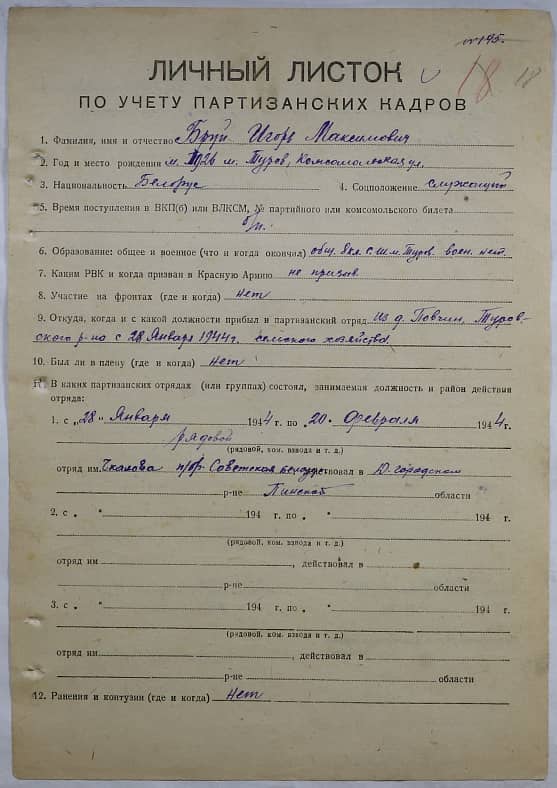 № 145.
ЛИЧНЫЙ ЛИСТОК
18 18
ПО УЧЕТУ ПАРТИЗАНСКИХ КАДРОВ
1. Фамилия, имя и отчество Игорь Максимович
2. Год и место рождения 1926 м. Туров, Комсомольская ул.
3. Национальность Белорус 4. Соцположение служащий
5. Время поступления в ВКП(б) или ВЛКСМ, № партийного или комсомольского билета
б/п.
6. Образование: общее и военное (что и когда окончил) общ. 8кл. с.ш. м. Туров. воен. нет.
7. Каким РВК и когда призван в Красную Армию не призыв
8. Участие на фронтах (где и когда) нет
9. Откуда, когда и с какой должности прибыл в партизанский отряд из д. Повчин, Туров-
ского р-на с 28 Января 1944г. сельского хозяйства
10. Был ли в плену (где и когда) нет
11. В каких партизанских отрядах (или группах) состоял, занимаемая должность и район действия
отряда:
1. с „28" Января 1944 г. по 20. Февраля 1944 г.
рядовой
(рядовой, ком. взвода и т. д.)
отряд им. Чкалова п/бр. Советская действовал в Д-городском
р-не Пинской области
2. с „ " 194 г. по „ " 194 г.
(рядовой, ком. взвода и т. д.)
отряд им , действовал в
р-не области
3. с „ " 194 г. по „ " 194 г.
(рядовой, ком. взвода и т. д.)
отряд им , действовал в
р-не области
12. Ранения и контузии (где и когда) Нет